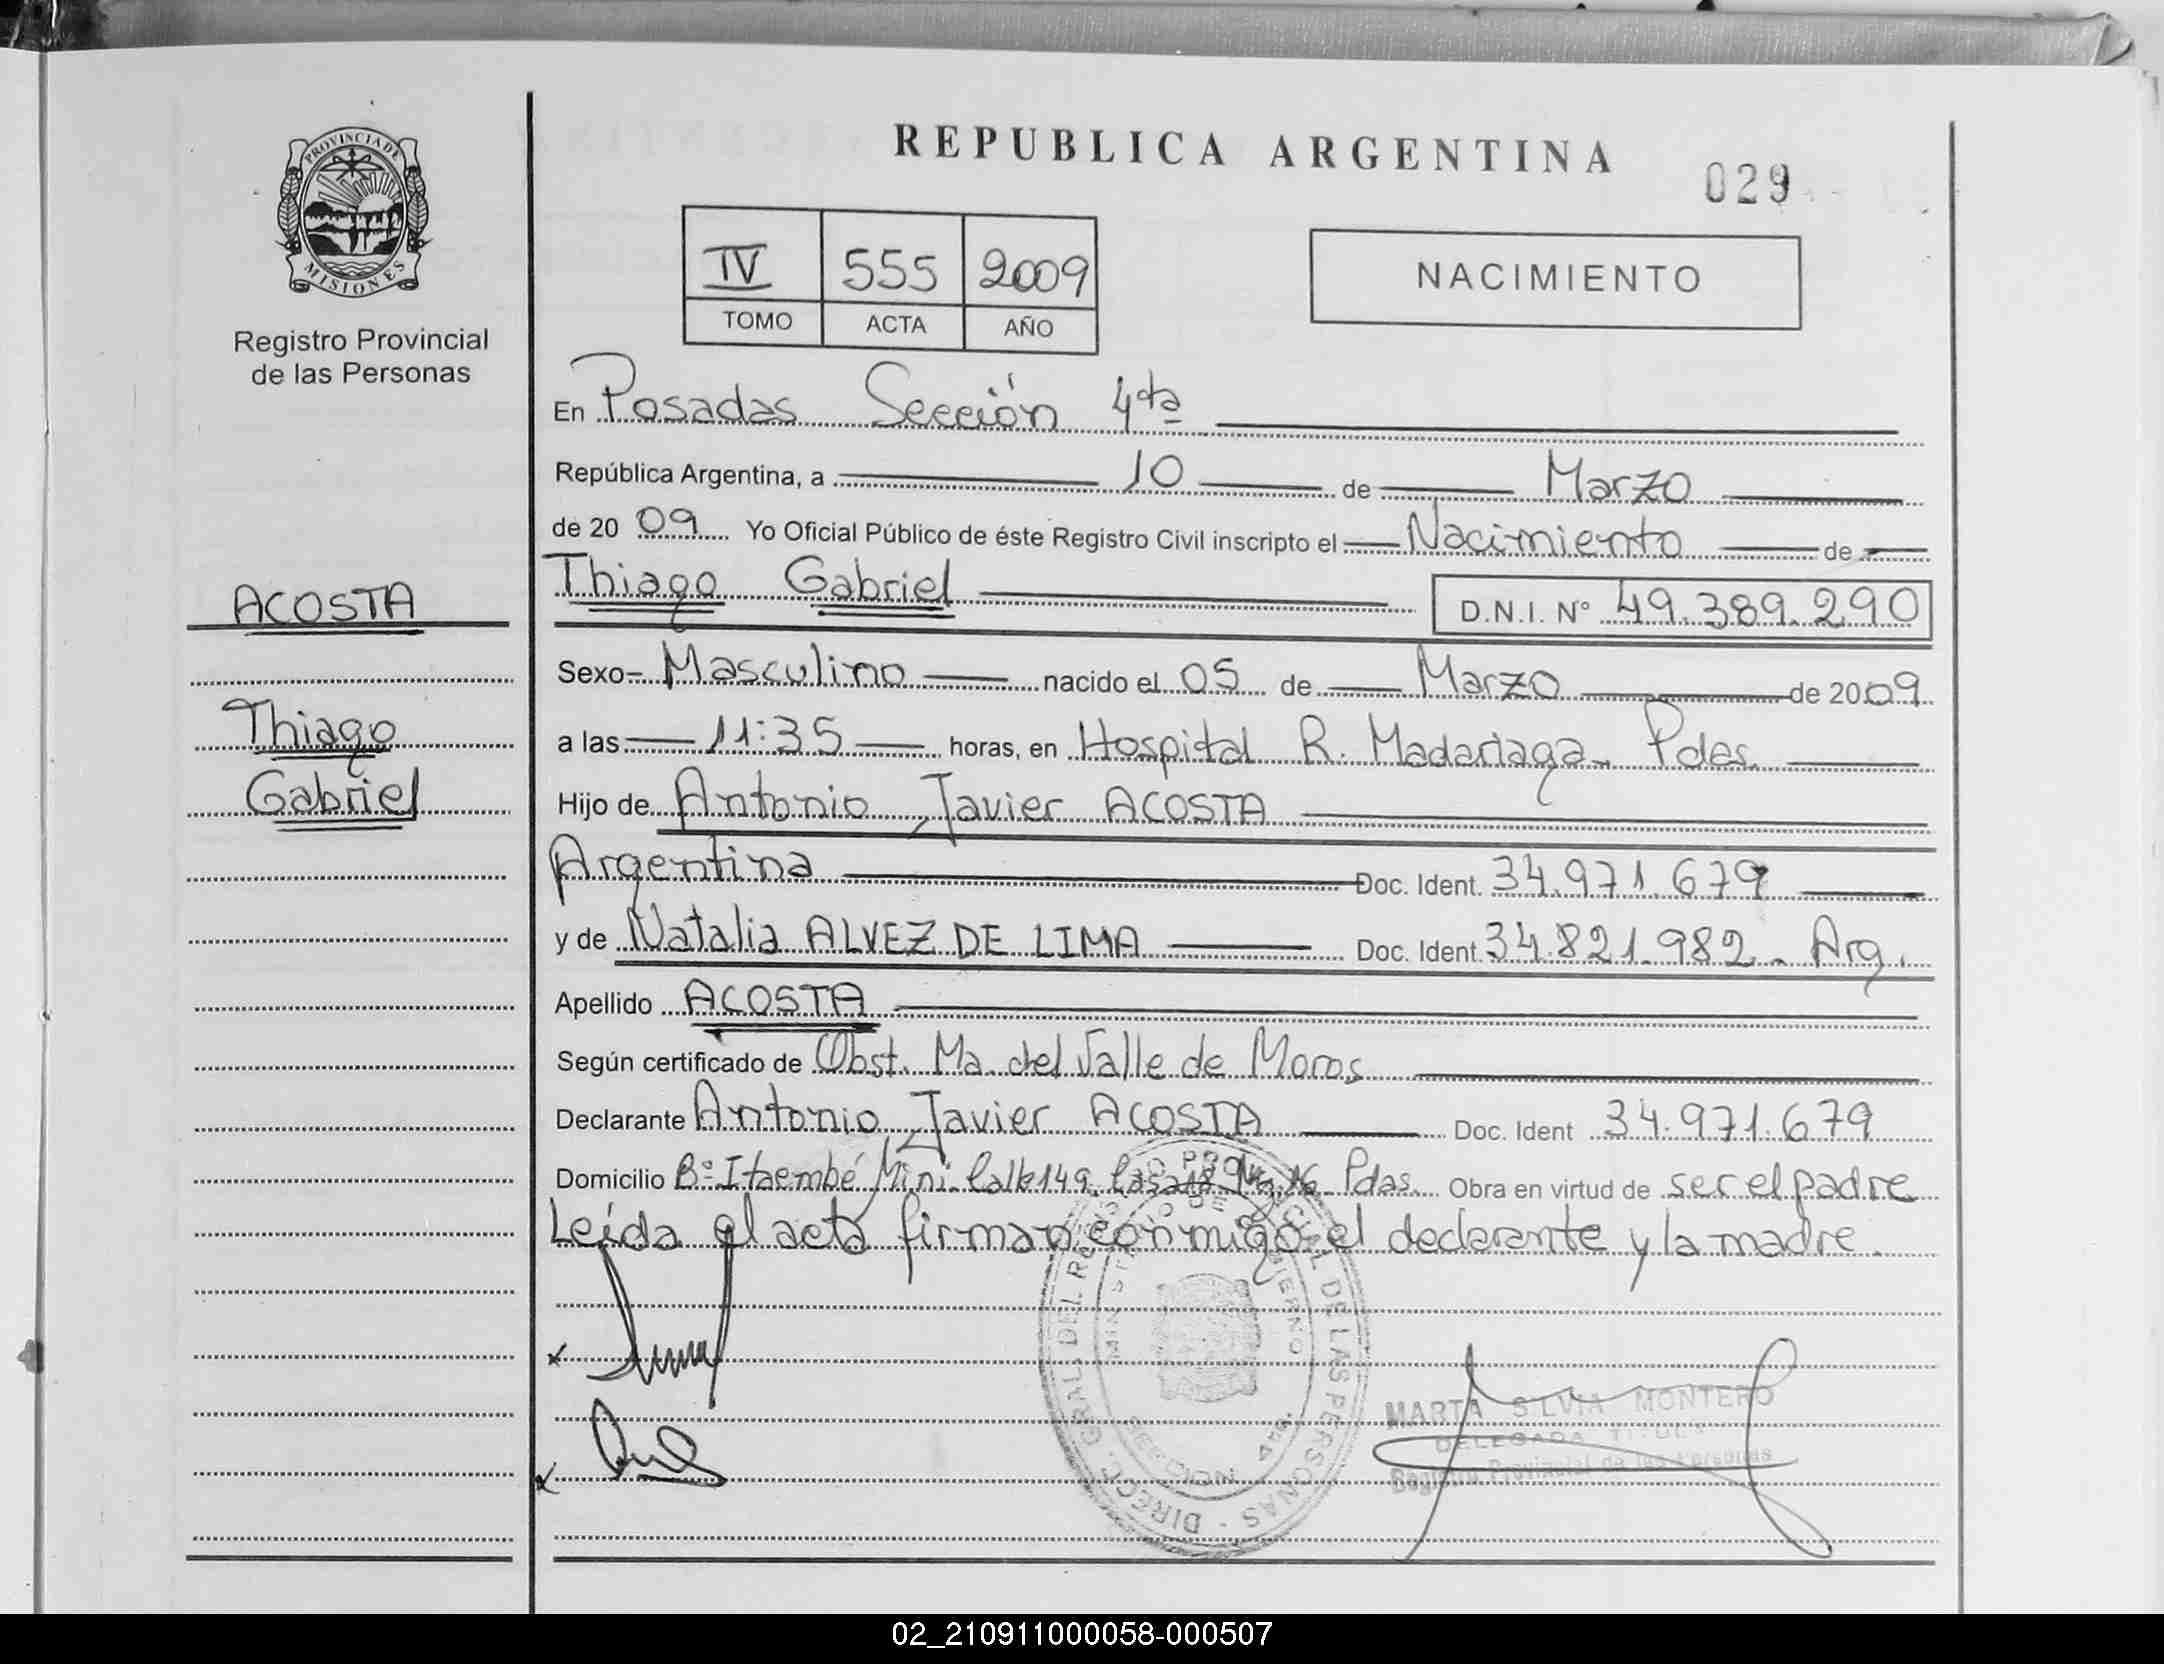 REPUBLICA ARGENTINA
029
PROVINCIA DE
MISIONES
Registro Provincial
de las Personas
IV 555 2009
TOMO ACTA AÑO
NACIMIENTO
En Posadas Sección 4ta
República Argentina, a 10 de Marzo
de 2009 Yo Oficial Público de éste Registro Civil inscripto el Nacimiento de
ACOSTA
Thiago
Gabriel
Thiago Gabriel D.N.I. Nº 49.389.290
Sexo Masculino nacido el 05 de Marzo de 2009
a las 11:35 horas, en Hospital R. Madariaga Pdas.
Hijo de Antonio Javier ACOSTA
Argentina Doc. Ident. 34.971.679
y de Natalia ALVEZ DE LIMA Doc. Ident. 34.821.982. Arg.
Apellido ACOSTA
Según certificado de Obst. Ma. del Valle de Moros
Declarante Antonio Javier ACOSTA Doc. Ident 34.971.679
Domicilio Bº Itaembé Mini. Calle 149. Pdas. Obra en virtud de ser el padre
Leída el acta firman conmigo el declarante y la madre.
DIRECC. GRAL. DEL REGISTRO PROVINCIAL DE LAS PERSONAS
MINISTERIO DE GOBIERNO
SECCION 4ta.
MARTA SILVIA MONTERO
DELEGADA TITULAR
Registro Provincial de las Personas
02_210911000058-000507